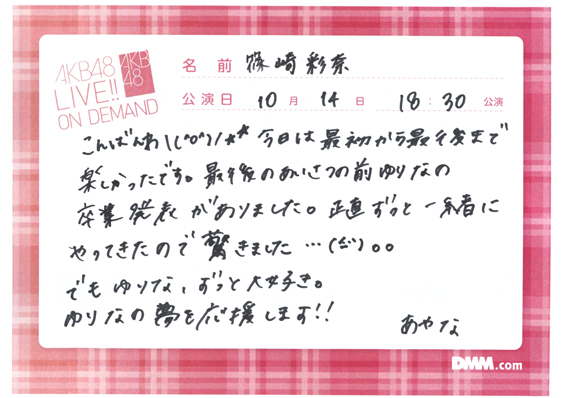 AKB48
LIVE!!
ON DEMAND
AKB
48
名前 篠崎彩奈
公演日 10月14日 18:30公演
こんばんわ\(^o^)/** 今日は最初から最後まで
楽しかったです。最後のあいさつの前ゆりなの
卒業発表がありました。正直ずっと一緒に
やってきたので驚きました…(;;)。。
でもゆりな、ずっと大好き。
ゆりなの夢を応援します!!
あやな
DMM.com